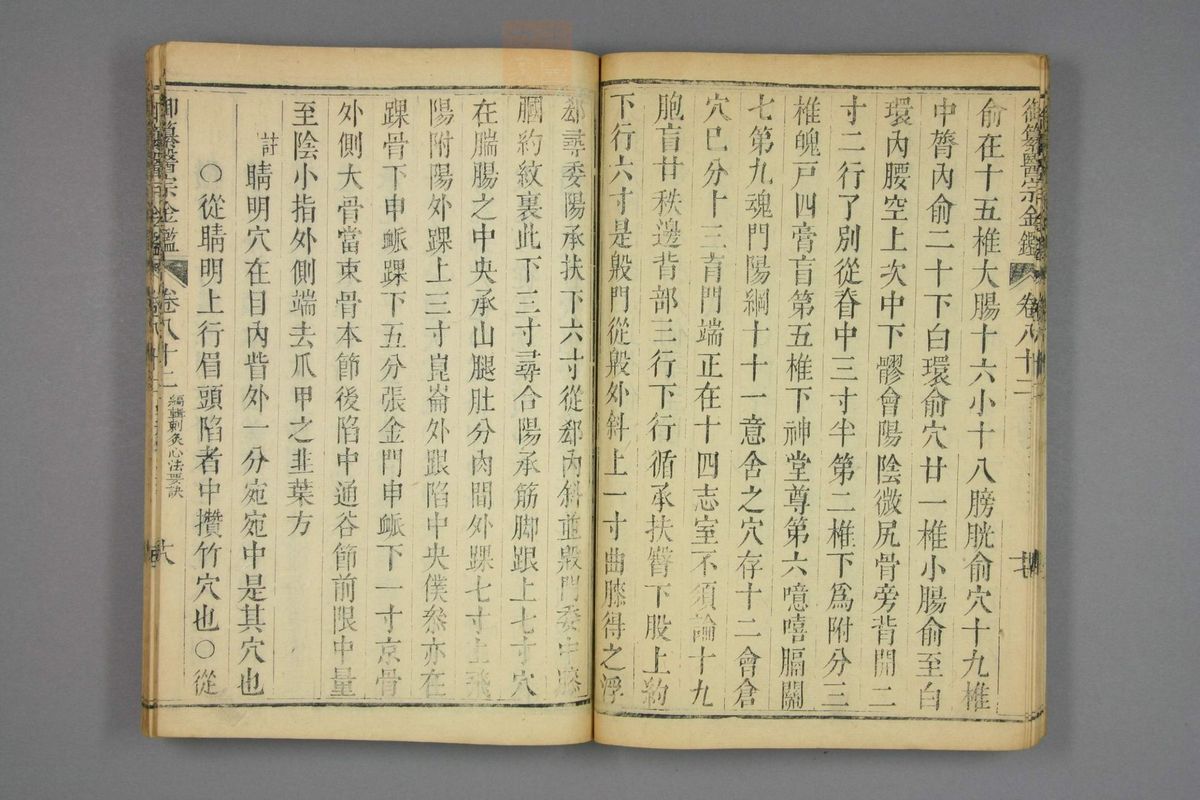 御纂醫宗金鑑 卷八十二
俞在十五椎大腸十六小十八膀胱俞穴十九椎
中膂內俞二十下白環俞穴廿一椎小腸俞至白
環內腰空上次中下髎會陽陰微尻骨旁背開二
寸二行了別從脊中三寸半第二椎下爲附分三
椎魄戶四膏肓第五椎下神堂尊第六噫嘻膈關
七第九魂門陽綱十十一意舍之穴存十二會倉
穴已分十三肓門端正在十四志室不須論十九
胞肓廿秩邊背部三行下行循承扶臀下股上約
下行六寸是殷門從殷外斜上一寸曲膝得之浮
郄尋委陽承扶下六寸從郄內斜並殷門委中膝
膕約紋裏此下三寸尋合陽承筋脚跟上七寸穴
在腨腸之中央承山腿肚分肉間外踝七寸上飛
陽附陽外踝上三寸崑崙外跟陷中央僕叅亦在
踝骨下申脈踝下五分張金門申脈下一寸京骨
外側大骨當束骨本節後陷中通谷節前限中量
至陰小指外側端去爪甲之韭葉方
註睛明穴在目內眥外一分宛宛中是其穴也
○從睛明上行眉頭陷者中攢竹穴也○從
御纂醫宗金鑑 卷八十二 編輯刺灸心法要訣 十八